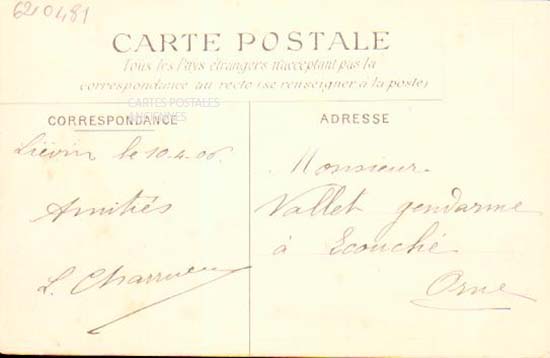 620481
CARTE POSTALE
Tous les Pays étrangers n'acceptant pas la
correspondance au recto (se renseigner à la poste)
CARTES POSTALES
ANCIENNES
CORRESPONDANCE
Liévin le 10-4-06
Amitiés
L.
ADRESSE
Monsieur
Vallet gendarme
à Ecouché
Orne